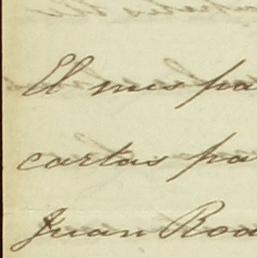 El mis pa
cartas pa
Juan Roa